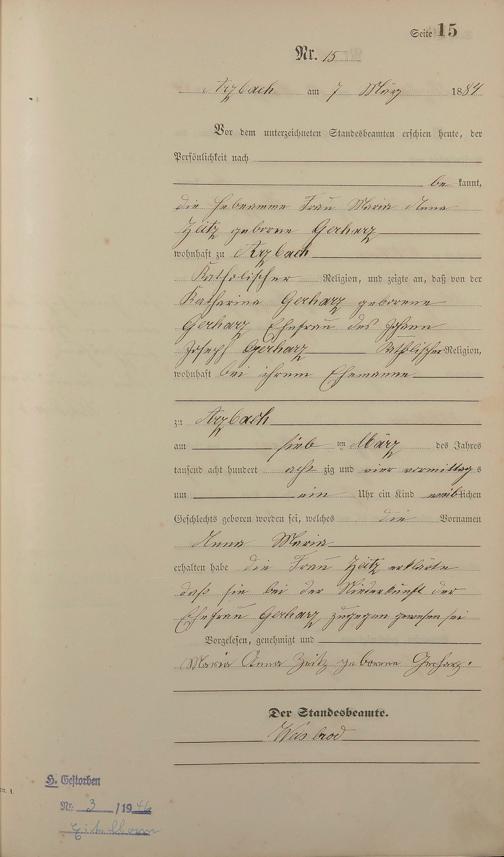 Seite 15
Nr. 15
Arzbach am 7 März 1884
Vor dem unterzeichneten Standesbeamten erschien heute, der
Persönlichkeit nach
be kannt,
die Hebamme Frau Maria Anna
Zeitz geborene Gerharz
wohnhaft zu Arzbach
Katholischer Religion, und zeigte an, daß von der
Katharina Gerharz geborene
Gerharz Ehefrau des Johann
Joseph Gerharz Katholischer Religion,
wohnhaft bei ihrem Ehemanne
zu Arzbach
am sieb ten März des Jahres
tausend acht hundert acht zig und vier vormittags
um ein Uhr ein Kind weiblichen
Geschlechts geboren worden sei, welches die Vornamen
Anna Maria
erhalten habe die Frau Zeitz erklärte
daß sie bei der Niederkunft der
Ehefrau Gerharz zugegen gewesen sei
Vorgelesen, genehmigt und
Maria Anna Zeitz geborene Gerharz.
Der Standesbeamte.
Weisbrod
H. Gestorben
Nr. 3 /1946